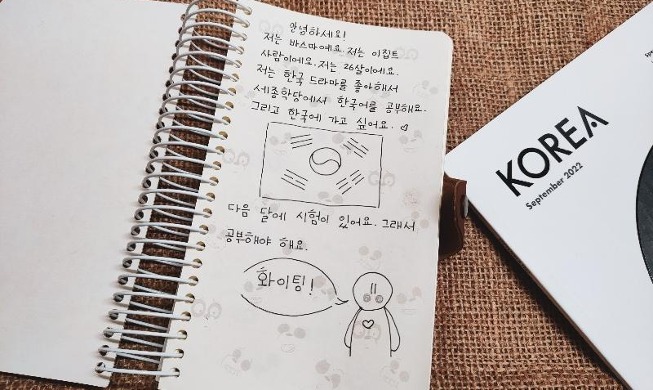 안녕하세요!
저는 바스마예요. 저는 이집트
사람이에요. 저는 26살이에요.
저는 한국 드라마를 좋아해서
세종학당에서 한국어를 공부해요.
그리고 한국에 가고 싶어요. ♡
다음 달에 시험이 있어요. 그래서
공부해야 해요.
화이팅!
KOREA
September 2022